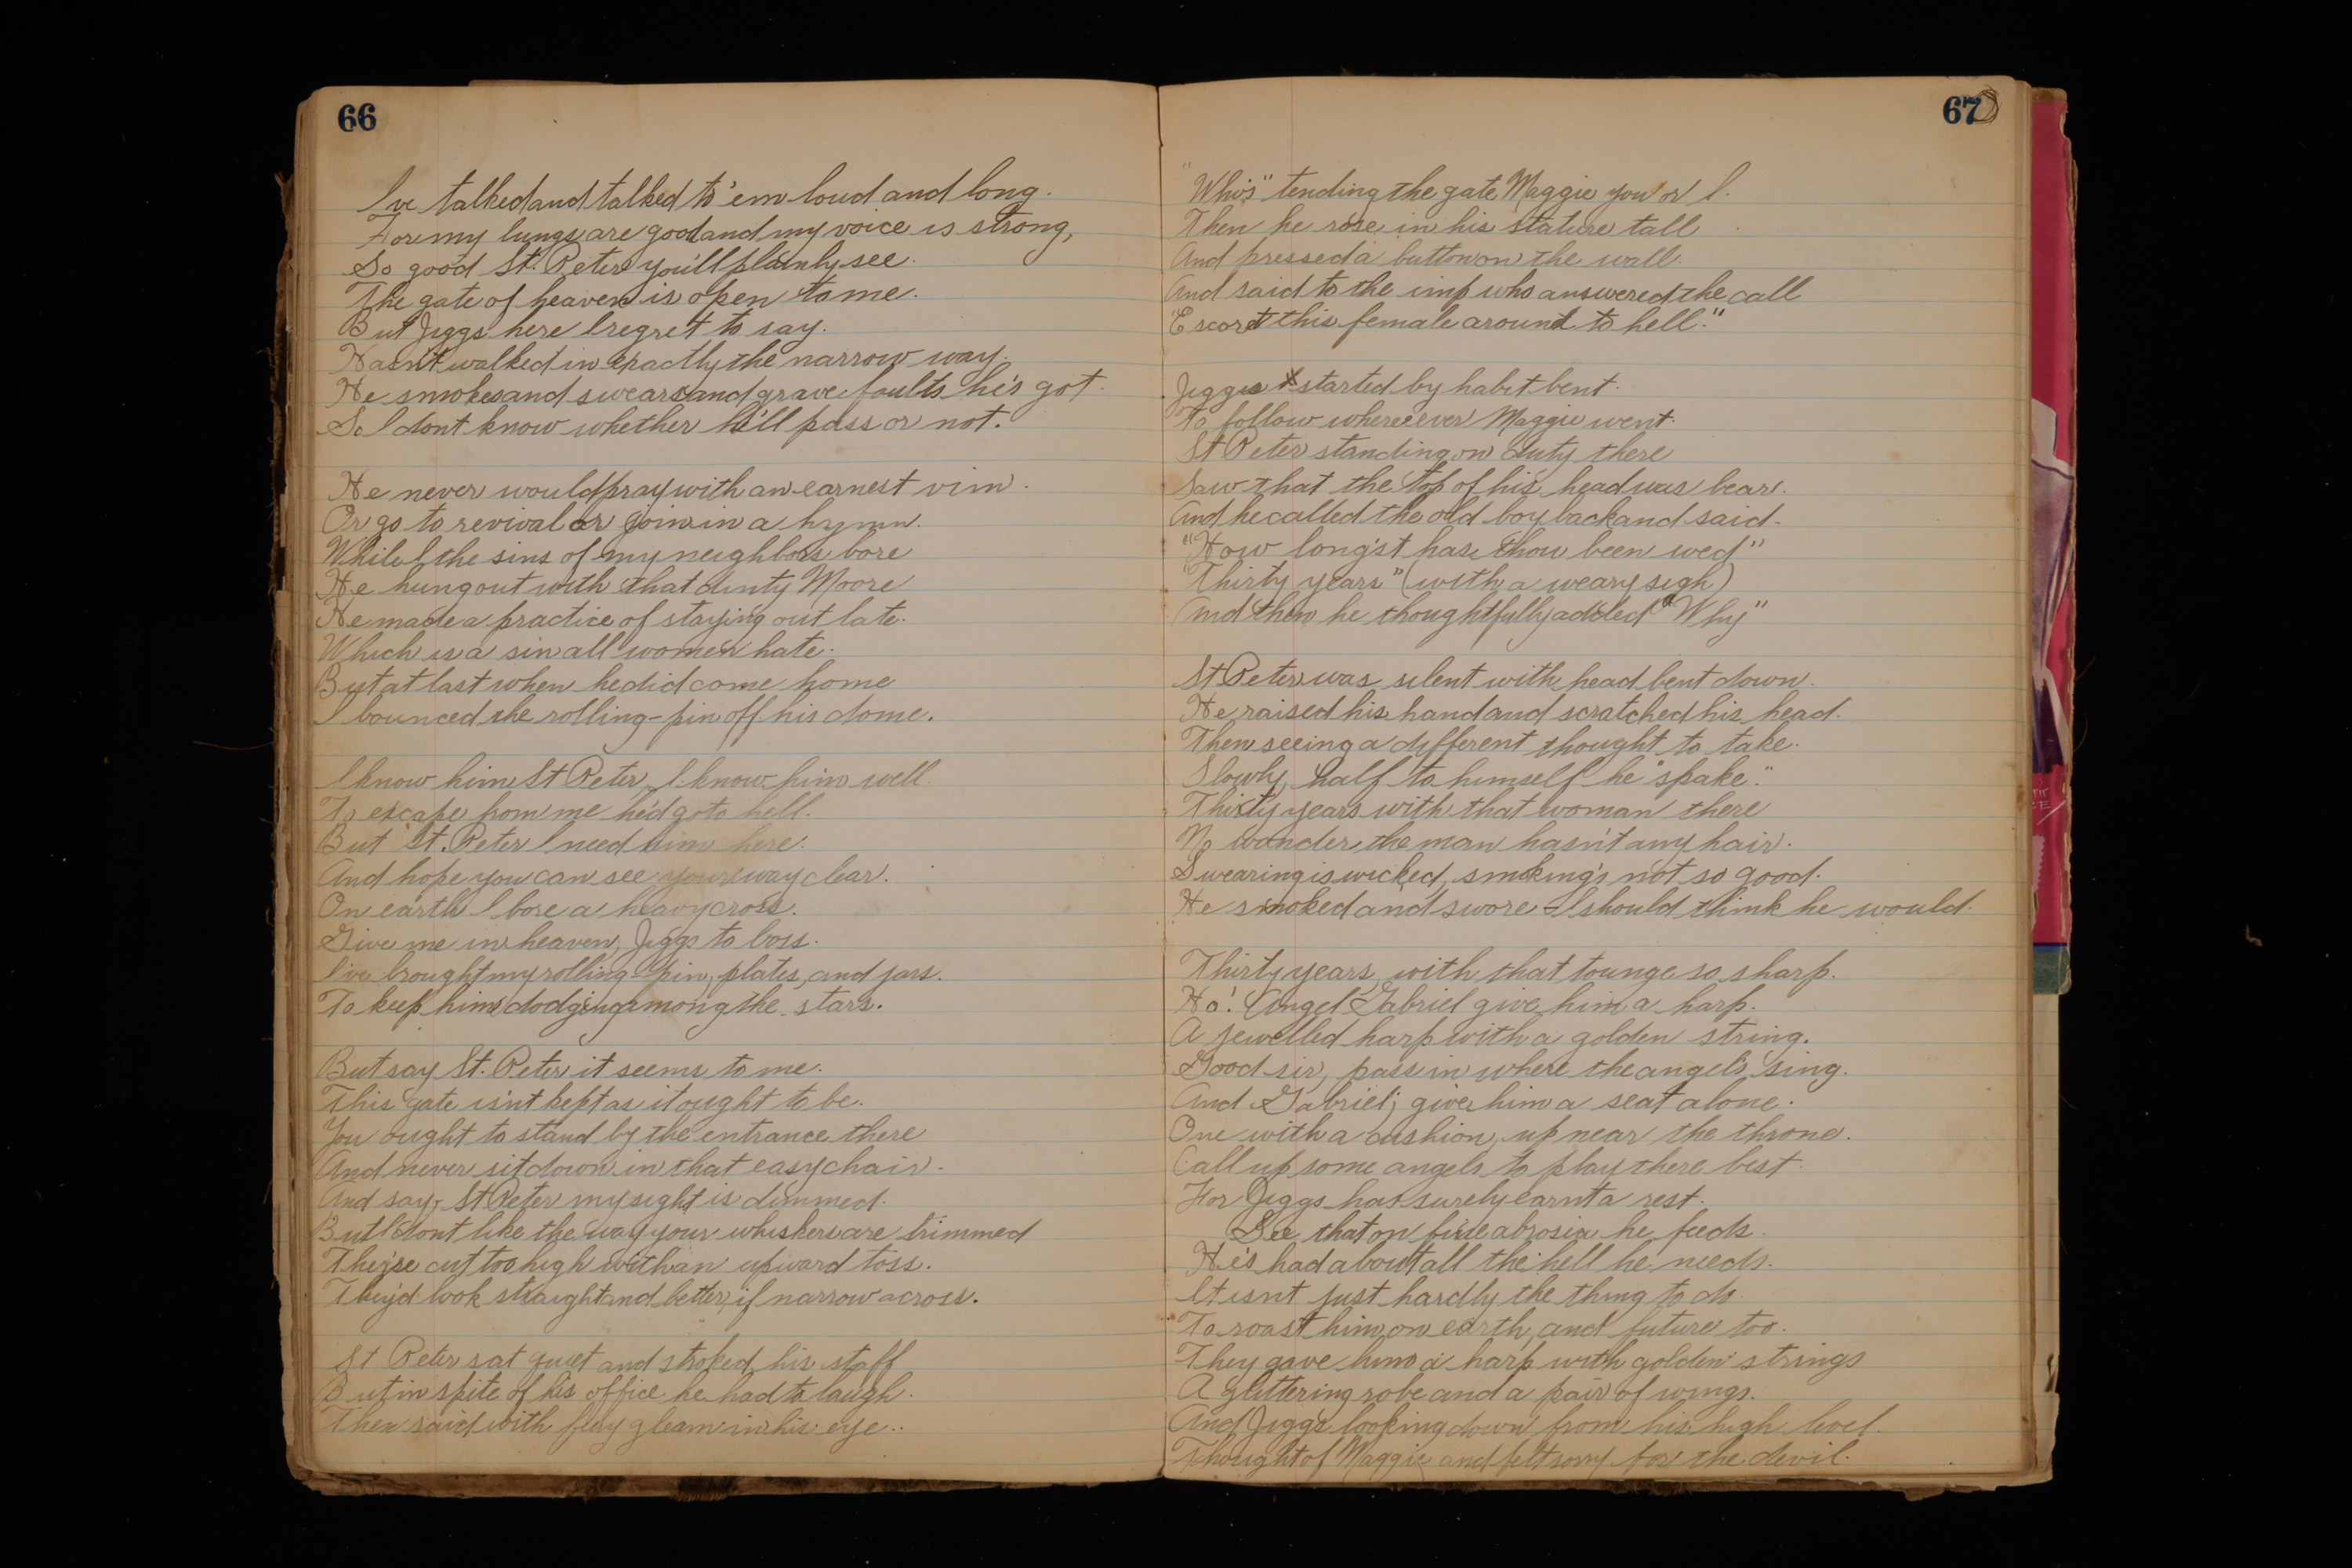 66
I've talked and talked to 'em loud and long.
For my lungs are good and my voice is strong,
So good St. Peter you'll plainly see.
The gate of heaven is open to me.
But Jiggs here I regret to say.
Hasn't walked in exactly the narrow way.
He smokes and swears and grave faults he's got.
So I dont know whether he'll pass or not.
He never would pray with an earnest vim.
Or go to revival or join in a hymn.
While I the sins of my neighbors bore
He hung out with that dinty Moore
He made a practice of staying out late.
Which is a sin all women hate.
But at last when he did come home
I bounced the rolling-pin off his dome.
I know him St Peter, I know him well.
To escape from me he'd go to hell.
But St. Peter I need him here.
And hope you can see your way clear.
On earth I bore a heavy cross.
Give me in heaven, Jiggs to boss.
I've brought my rolling-pin, plates, and jars.
To keep him dodging among the stars.
But say St. Peter it seems to me.
This gate isn't kept as it ought to be.
You ought to stand by the entrance there
And never sit down in that easy chair.
And say, St Peter my sight is dimmed.
But I dont like the way your whiskers are trimmed
They're cut too high with an upward toss.
They'd look straight and better, if narrow across.
St Peter sat quiet and stroked his staff
But in spite of his office he had to laugh.
Then said with gleam in his eye..
67
"Who's" tending the gate Maggie you or I.
Then he rose in his stature tall
And pressed a button on the wall.
And said to the imp who answered the call
"Escort this female around to hell."
Jiggs started by habit bent.
To follow whereever Maggie went.
St Peter standing on duty there
Saw that the top of his head was bear.
And he called the old boy back and said-
"How long'st has thou been wed"
"Thirty years" (with a weary sigh)
And then he thoughtfully added "Why"
St Peter was silent with head bent down.
He raised his hand and scratched his head.
Then seeing a different thought to take.
Slowly, half to himself he "spake."
Thirty years with that woman there
No wonder the man hasn't any hair.
Swearing is wicked, smoking's not so good.
He smoked and swore - I should think he would.
Thirty years, with that tounge so sharp.
Ho! Angel Gabriel give him a harp.
A jewelled harp with a golden string.
Good sir, pass in where the angels sing.
And Gabriel; give him a seat alone.
One with a cushion, up near the throne.
Call up some angels to play there best.
For Jiggs has surely earnt a rest.
See that on fine abrosia he feeds.
He's had about all the hell he needs.
It isn't just hardly the thing to do.
To roast him on earth, and future too.
They gave him a harp with golden strings
A glittering robe and a pair of wings.
And Jiggs looking down from his high level.
Thought of Maggie and felt sorry for the devil.